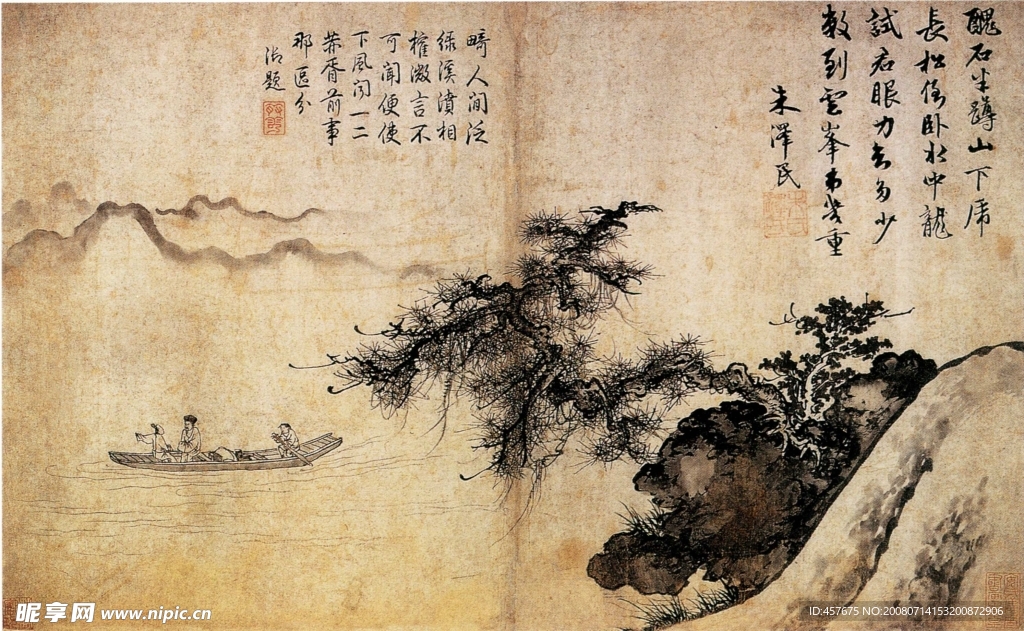 醜石半蹲山下虎
長松倒卧水中龍
試君眼力知多少
數到雲峯第幾重
朱澤民
畸人閒泛
綠溪濆相
榷微言不
可聞便使
下風聞一二
華胥前事
那區分
御題
昵享网 www.nipic.cn
ID:457675 NO:20080714153200872906